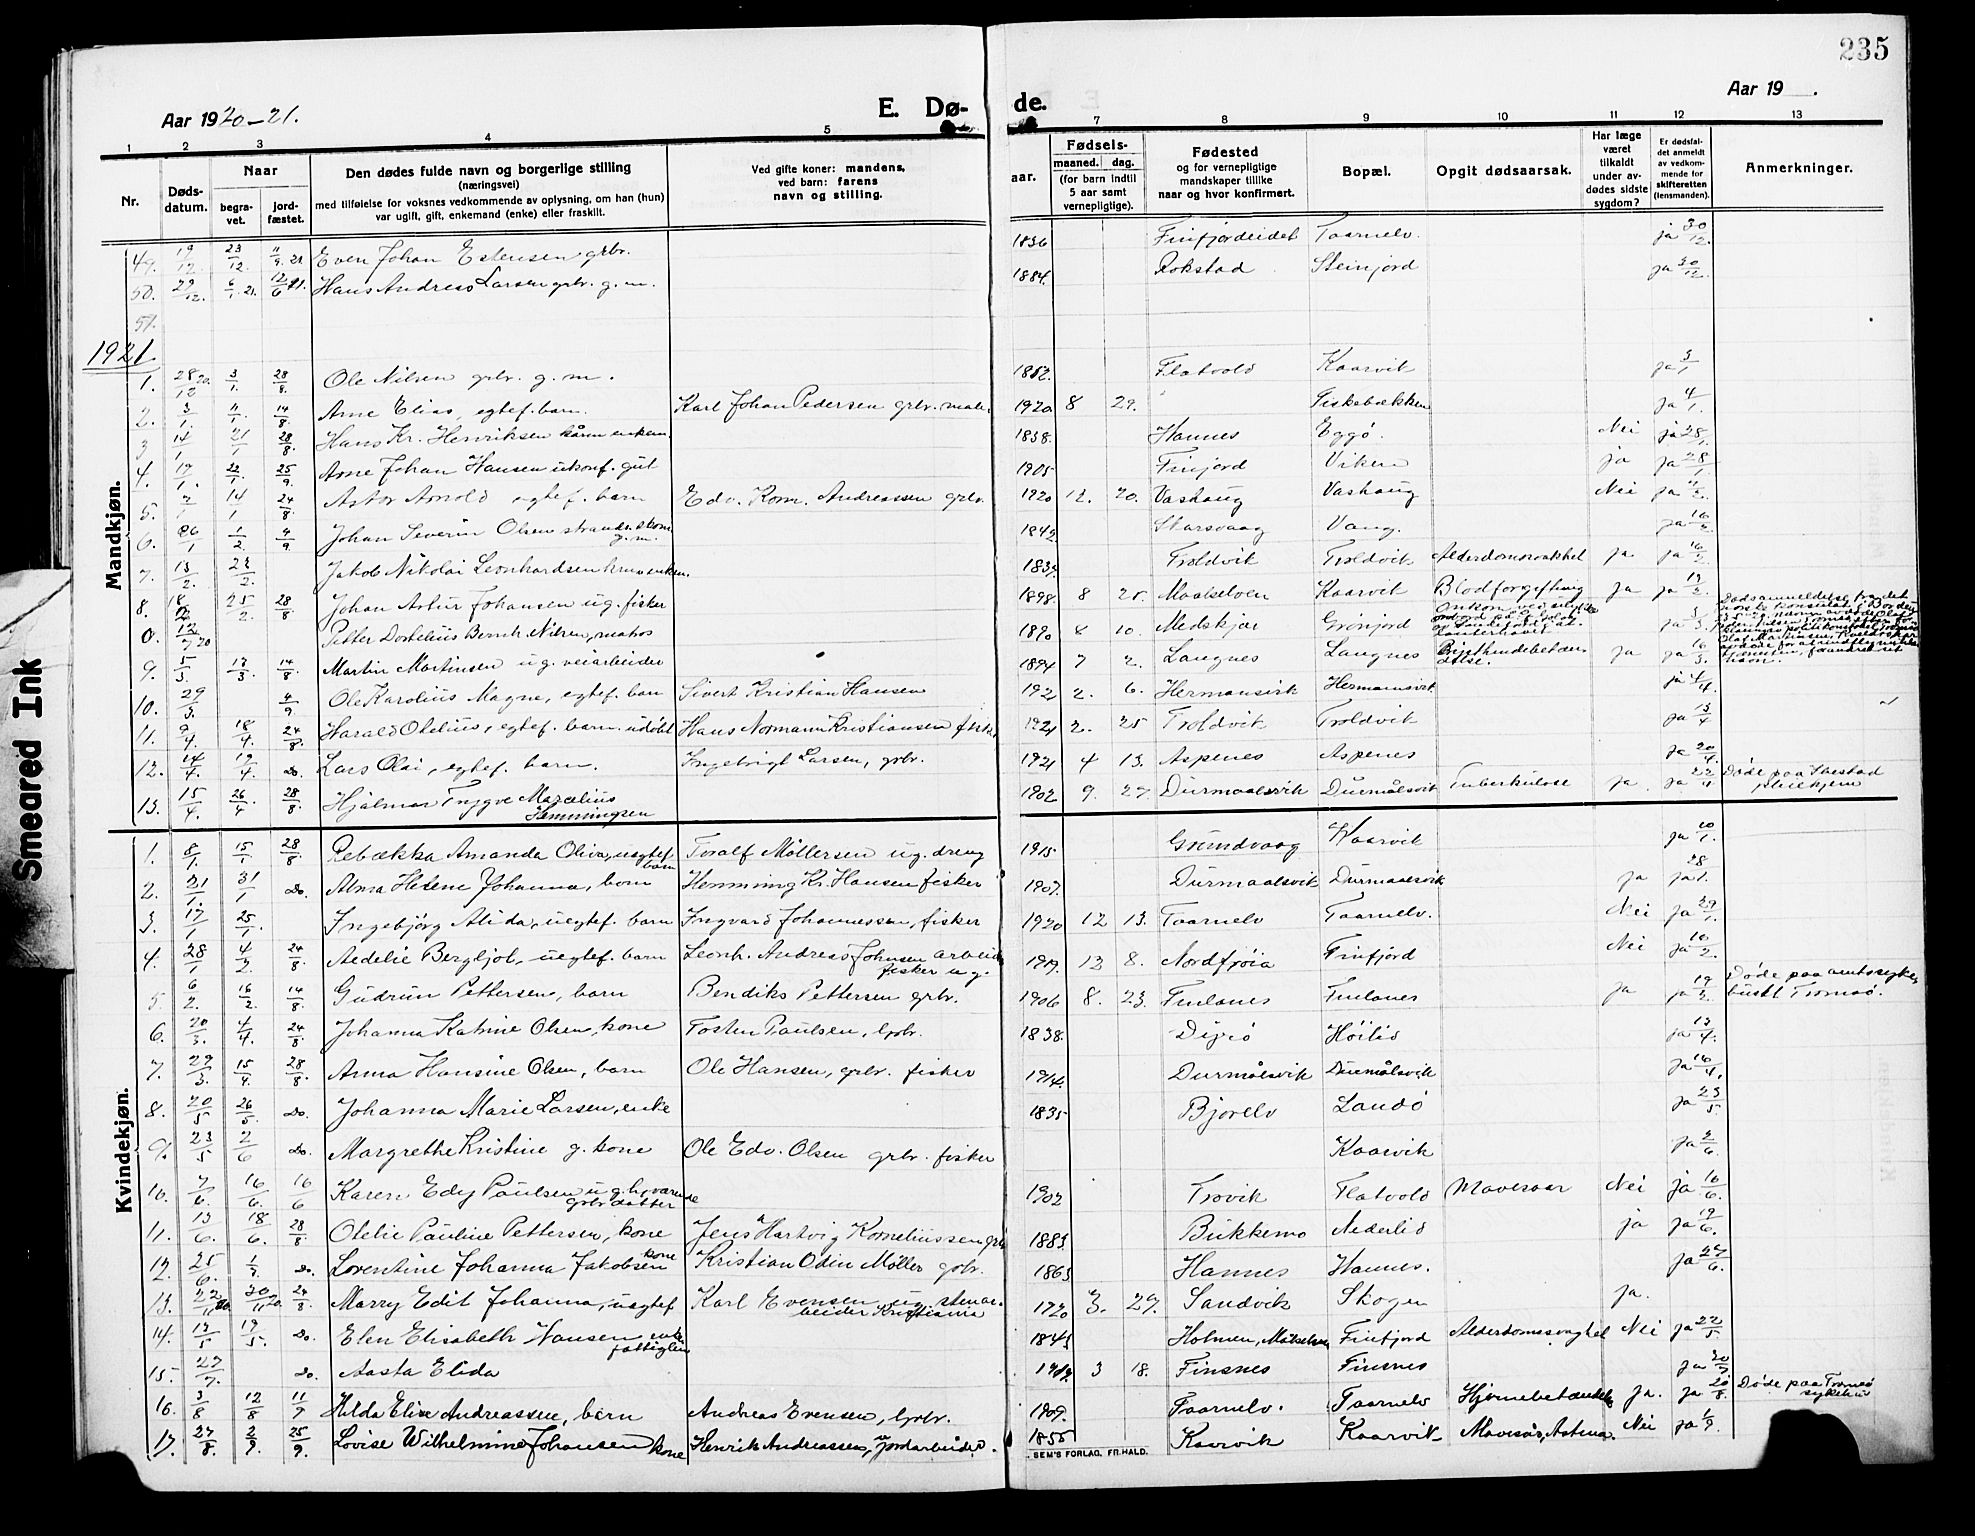 235
Aar 1920-21.
E. Dø-
de.
Aar 19 .
1 2 3 4 5 7 8 9 10 11 12 13
Nr.
Døds-
datum.
Naar
begra-
vet.
jord-
fæstet.
Den dødes fulde navn og borgerlige stilling
(næringsvei)
med tilføielse for voksnes vedkommende av oplysning, om han (hun)
var ugift, gift, enkemand (enke) eller fraskilt.
Ved gifte koner: mandens,
ved barn: farens
navn og stilling.
aar.
Fødsels-
maaned. dag.
(for barn indtil
5 aar samt
vernepligtige).
Fødested
og for vernepligtige
mandskaper tillike
naar og hvor konfirmert.
Bopæl.
Opgit dødsaarsak.
Har læge
været
tilkaldt
under av-
dødes sidste
sygdom?
Er dødsfal-
det anmeldt
av vedkom-
mende for
skifteretten
(lensmanden).
Anmerkninger.
Mandkjøn.
49. 19/12. 23/12. 11/9. 21 Even Johan Estensen grbr. 1836 Finfjordeidet Taarnelv. ja 30/12.
50. 29/12. 6/1. 21. 12/6 21. Hans Andreas Larsen grbr. g.m. 1884. Rokstad Steinjord ja 30/12.
51.
1921
1. 28/12 20. 3/1. 28/8. Ole Nilsen grbr. g.m. 1852. Flatvold Kaarvik ja 3/1
2. 3/1. 11/1. 14/8. Arne Elias, egtef. barn. Karl Johan Pedersen grbr. maler 1920 8 29. Fiskebækken ja 4/1.
3 14/1 21/1 28/8. Hans Kr. Henriksen kårm. enkem. 1838. Hannes Eggö. Nei ja 28/1.
4. 19/1. 22/1. 25/9. Arne Johan Hansen ukonf. gut 1905 Finjord Viken ja ja 28/1.
5. 2/1 14/1 24/8. Astor Arnold egtef. barn Edv. Korn. Andreassen grbr. 1920 12. 20. Vashaug Vashaug Nei ja
6. 26/1 1/2. 4/9. Johan Severin Olsen strands. skom. g.m. 1842 Skarsvaag Vang. ja 16/2.
7. 13/2. 23/2. Jakob Nikolai Leonhardsen enkem. 1834. Troldvik Troldvik Alderdomssvakhet ja ja 16/2.
8. 18/2 25/2. 28/8 Johan Artur Johansen ug. fisker 1898. 8 25. Maalselven Kaarvik Blodforgiftning ja ja
0. 12/7 20 Petter Dortelius Bernh. Nilsen, matros 1890 4 10. Medskjær Grönjord ja 3/3.
9. 5/3. 13/3. 14/8. Martin Martinsen ug. veiarbeider 1894 7 2. Langnes Langnes Brysthindebetændelse. ja ja 16/3.
10. 29/3. 4/9 Ole Karolius Magne, egtef. barn Sivert Kristian Hansen 1921 2. 6. Hermansvik Hermansvik ja 4/4.
11. 9/4. 18/4. 24/8. Harald Otelius, egtef. barn. udöbt Hans Normann Kristiansen fisker 1921 2. 25 Troldvik Troldvik ja 13/4
12. 14/4. 19/4. Do. Lars Olai, egtef. barn. Ingebrigt Larsen, grbr. 1921 4 13. Aspenes Aspenes ja 20/4.
13. 15/4. 26/4 28/8. Hjalmar Trygve Marselius Hemmingsen 1902 9. 27. Durmaalsvik Durmålsvik Tuberkulose ja ja 22/4 Døde paa Ibestad pleiehjem
Kvindekjøn.
1. 8/1. 15/1. 28/8 Rebækka Amanda Oliva, uegtef. barn Toralf Möllersen ug. dreng 1915 Grundvaag Kaarvik ja 10/1.
2. 21/1. 31/1 Do. Alma Helene Johanna, barn Hemming Kr. Hansen fisker 1907. Durmaalsvik Durmaalsvik ja ja 28/1.
3. 17/1 25/1. Ingebjörg Alida, uegtef. barn Ingvard Johannessen, fisker 1920 12 13. Taarnelv Taarnelv. Nei ja 29/1.
4. 28/1 4/2. 24/8 Aedelie Bergljot, uegtef. barn Leonh. Andreas Johnsen arbeider fisker ug. 1919. 12 8. Nordfröia Finfjord Nei ja 10/2.
5. 6/2. 16/2. 14/8. Gudrun Pettersen, barn Bendiks Pettersen grbr. 1906 8. 23. Finlanes Finlanes ja ja 19/2. Døde paa amtssykehuset Tromsö.
6. 20/3. 4/4. 24/8 Johanna Katrine Olsen, kone Tosten Paulsen, grbr. 1838. Dyrö Höilid ja 13/4.
7. 29/3. 15/4. 28/8. Anna Hansine Olsen, barn Ole Hansen, grbr. fisker 1914. Durmålsvik Durmålsvik ja 16/4.
8. 20/5 26/5. Do. Johanna Marie Larsen, enke 1835 Bjorelv Landö ja 23/5
9. 23/5 2/6 Do. Margrethe Kristine g. kone Ole Edv. Olsen grbr. fisker Kaarvik ja 2/6.
10. 7/6. 16/6. 16/6 Karen Edy Paulsen ug. hj.værende grbr. datter 1902 Trovik Flatvold Mavesaar Nei ja 16/6.
11. 13/6. 18/6. 28/8 Otelie Pauline Pettersen, kone Jens Hartvig Korneliussen grbr 1883 Bukkemo Nederlid ja ja 19/6.
12. 25/6. Do. Lorentine Johanna Jakobsen kone Kristian Odin Møller grbr. 1863 Hannes Hannes. ja 27/6.
13. 22/11 20. 30/11 20. 24/8. Marry Edit Johanna, uegtef Karl Evensen ug. stenarbeider Kristiania 1920 3. 29. Sandvik Skogen ja.
14. 13/5 19/5. Do. Elen Elisabeth Hansen enke fattiglem 1843 Holmen, Målselven Finfjord Alderdomssvaghet Nei ja 22/5
15. 27/7. Do. Aasta Elida 3 18. Finsnes Finsnes ja
16. 3/8 12/8 11/9 Hilda Elise Andreassen, barn Andreas Evensen, grbr. 1909. Taarnelv. Taarnelv Hjernebetændelse ja. ja 20/8. Døde paa Tromsö sykehus
17. 27/8. 2/9. 25/9. Lovise Wilhelmine Johansen kone Henrik Andreassen, jordarbeider. 1855 Kaarvik Kaarvik Mavesår, Astma. Nei ja 1/9.
SEM'S FORLAG, FR.HALD.
Smeared Ink